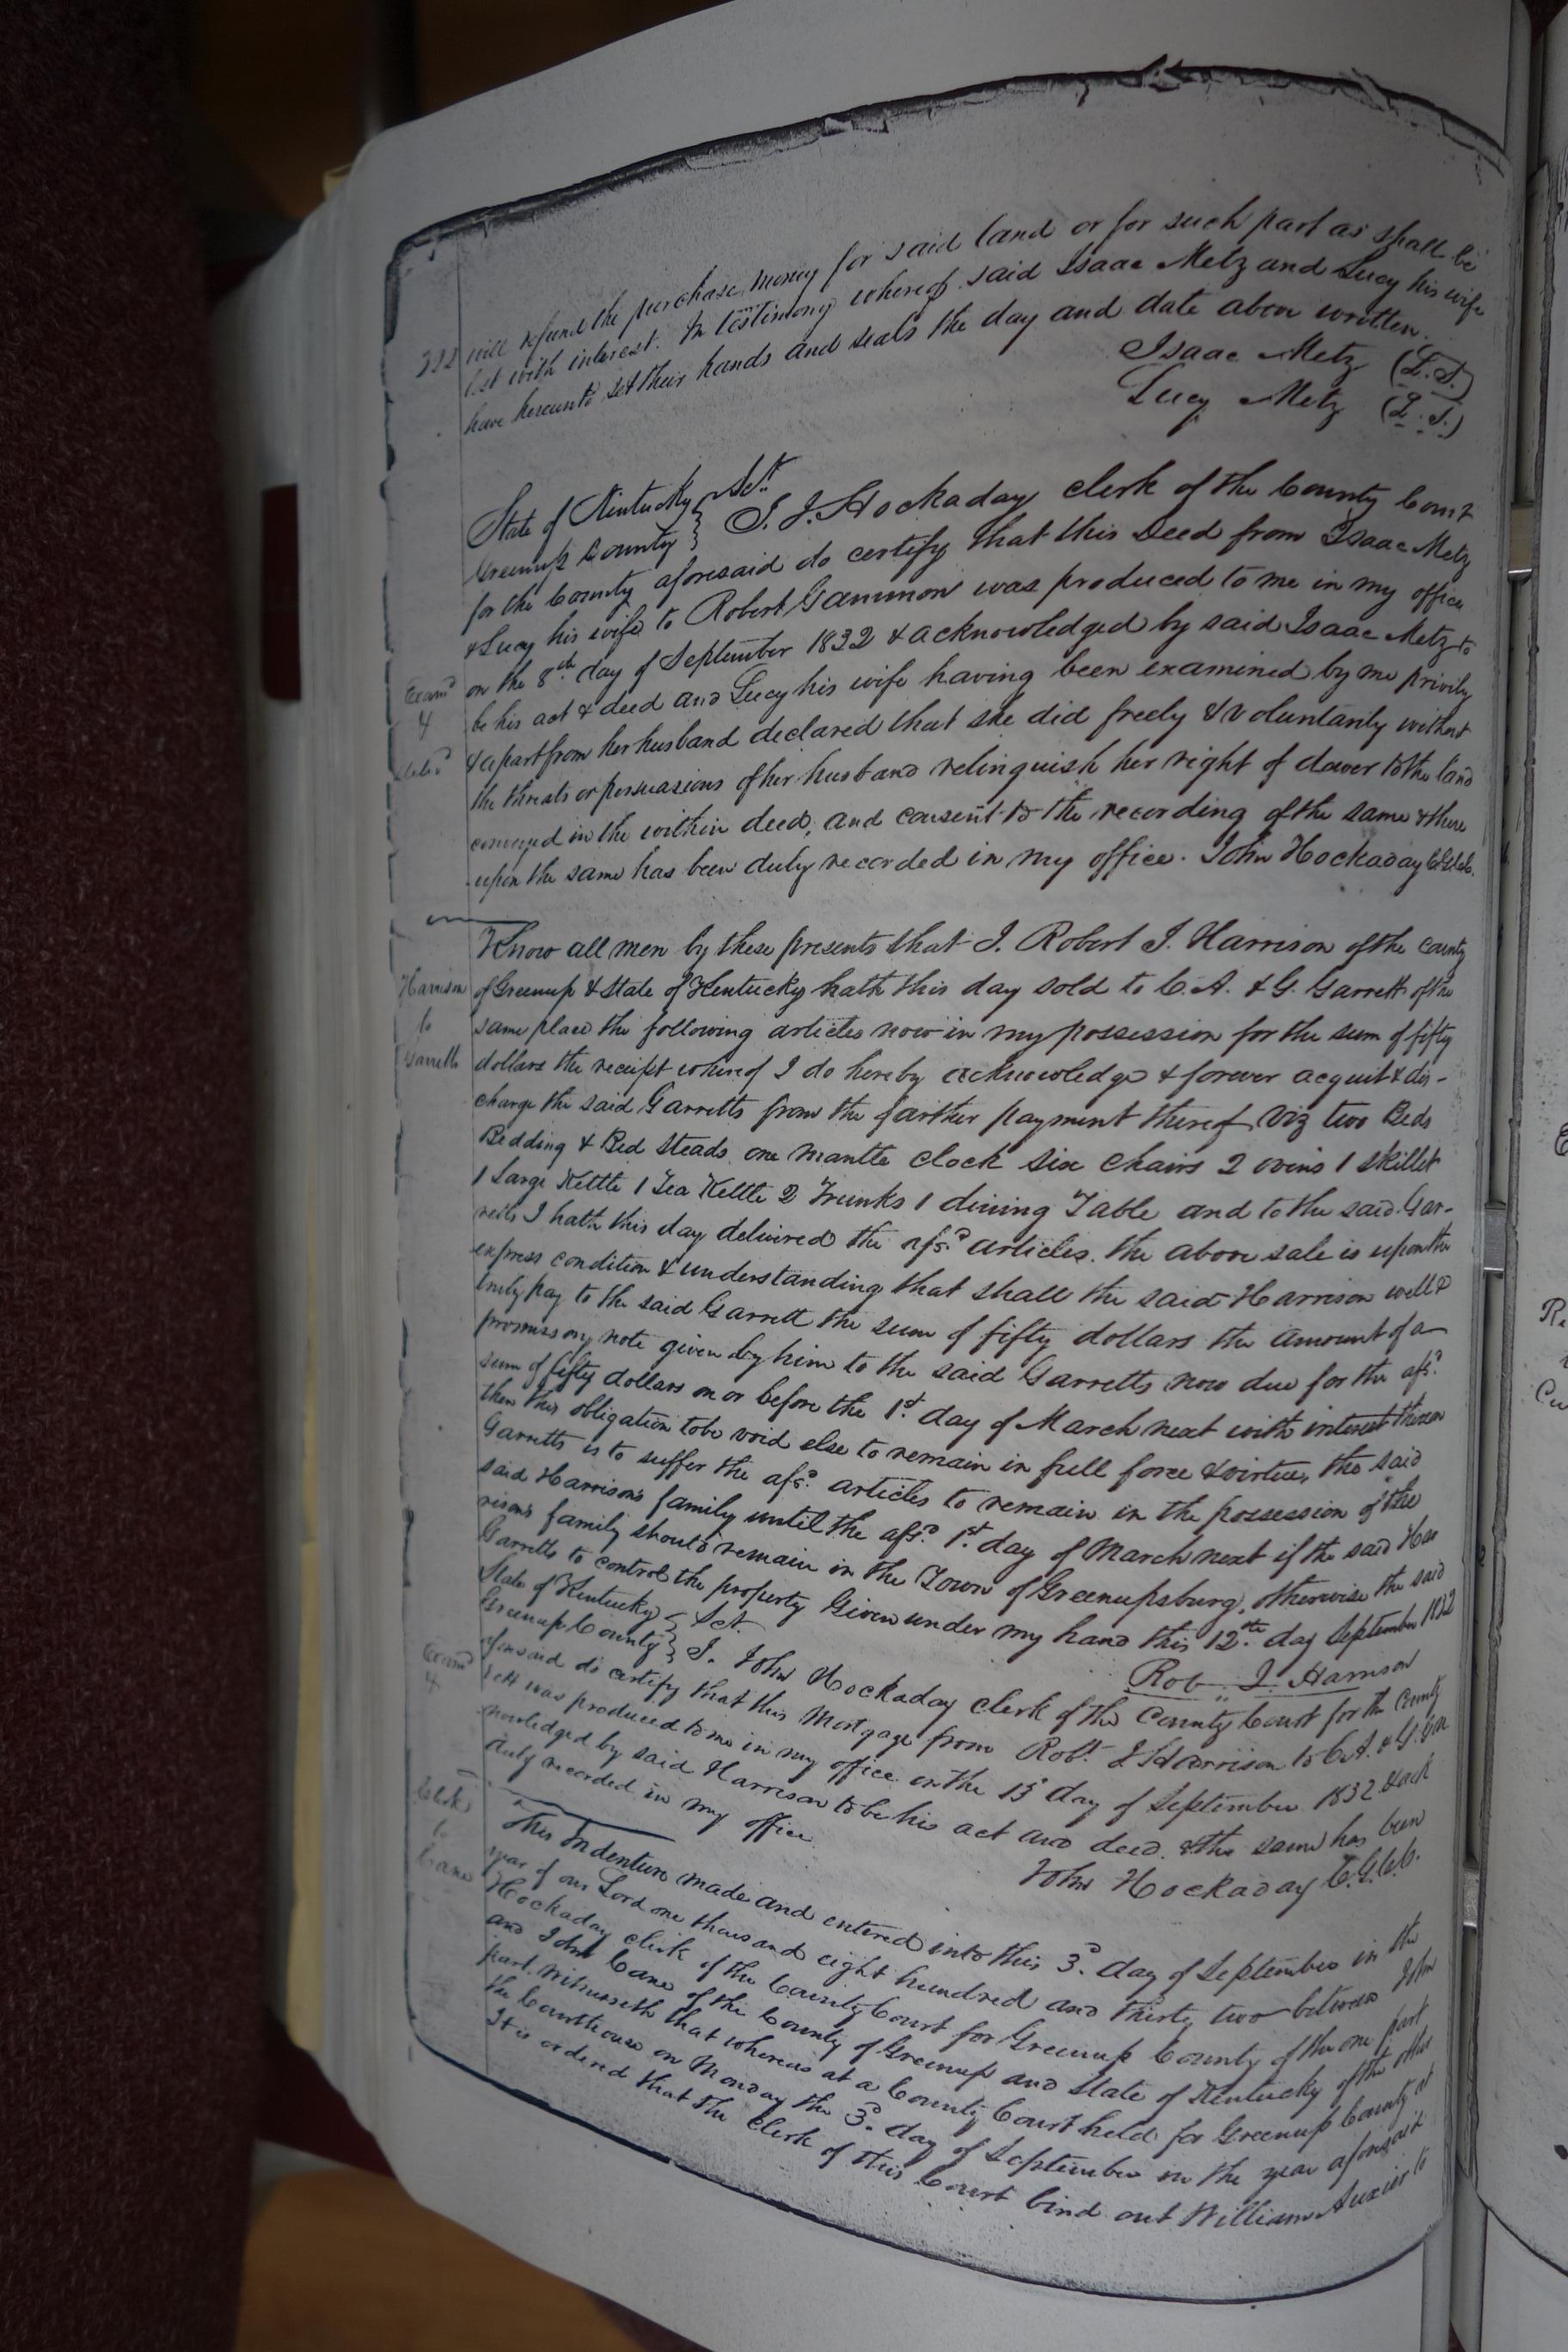 232
will refund the purchase money for said land or for such part as shall be
lost with interest. In testimony whereof said Isaac Metz and Lucy his wife
have hereunto set their hands and seals the day and date above written.
Isaac Metz (L.S.)
Lucy Metz (L.S.)
State of Kentucky } Sct.
Greenup County } I. J. Hockaday clerk of the County Court
for the County aforesaid do certify that this Deed from Isaac Metz
& Lucy his wife to Robert Gammon was produced to me in my office
on the 8th day of September 1832 & acknowledged by said Isaac Metz to
be his act & deed and Lucy his wife having been examined by me privily
& apart from her husband declared that she did freely & voluntarily without
the threats or persuasions of her husband relinquish her right of dower to the land
conveyed in the within deed, and consent to the recording of the same & there
upon the same has been duly recorded in my office. John Hockaday C.G.C.C.
Examd
4
Know all men by these presents that I. Robert I. Harrison of the county
of Greenup & State of Kentucky hath this day sold to C. A. & G. Garrett of the
same place the following articles now in my possession for the sum of fifty
dollars the receipt whereof I do hereby acknowledge & forever acquit & dis-
charge the said Garretts from the farther payment thereof Viz two Beds
Bedding & Bed Steads one mantle clock six chairs 2 ovens 1 skillet
1 Large Kettle 1 Tea Kettle 2 Trunks 1 dining Table and to the said Gar-
retts I hath this day delivered the afsd articles. the above sale is upon the
express condition & understanding that shall the said Harrison well &
truly pay to the said Garrett the sum of fifty dollars the amount of a
promissory note given by him to the said Garretts now due for the afsd
sum of fifty dollars on or before the 1st day of March next with interest thereon
then this obligation to be void else to remain in full force & virtue, the said
Garretts is to suffer the afsd articles to remain in the possession of the
said Harrison's family until the afsd 1st day of March next if the said Har
rison's family should remain in the Town of Greenupsburg, otherwise the said
Garretts to control the property Given under my hand this 12th day September 1832
Harrison
to
Garretts
Rob I. Harrison
State of Kentucky } Sct.
Greenup County } I. John Hockaday clerk of the County Court for the County
aforesaid do certify that this Mortgage from Robt I Harrison to C. A. & G. Gar
rett was produced to me in my office on the 15 day of September 1832 & ack
nowledged by said Harrison to be his act and deed. & the same has been
duly recorded in my office.
John Hockaday C.G.C.C.
Examd
4
This Indenture made and entered into this 3d day of September in the
year of our Lord one thousand eight hundred and thirty two between John
Hockaday clerk of the County Court for Greenup County of the one part
and John Cane of the County of Greenup and State of Kentucky of the other
part. witnesseth that whereas at a County Court held for Greenup County at
the Courthouse on Monday the 3d day of September in the year aforesaid
It is ordered that the Clerk of this Court bind out William Auxier to
Clerk
to
Cane